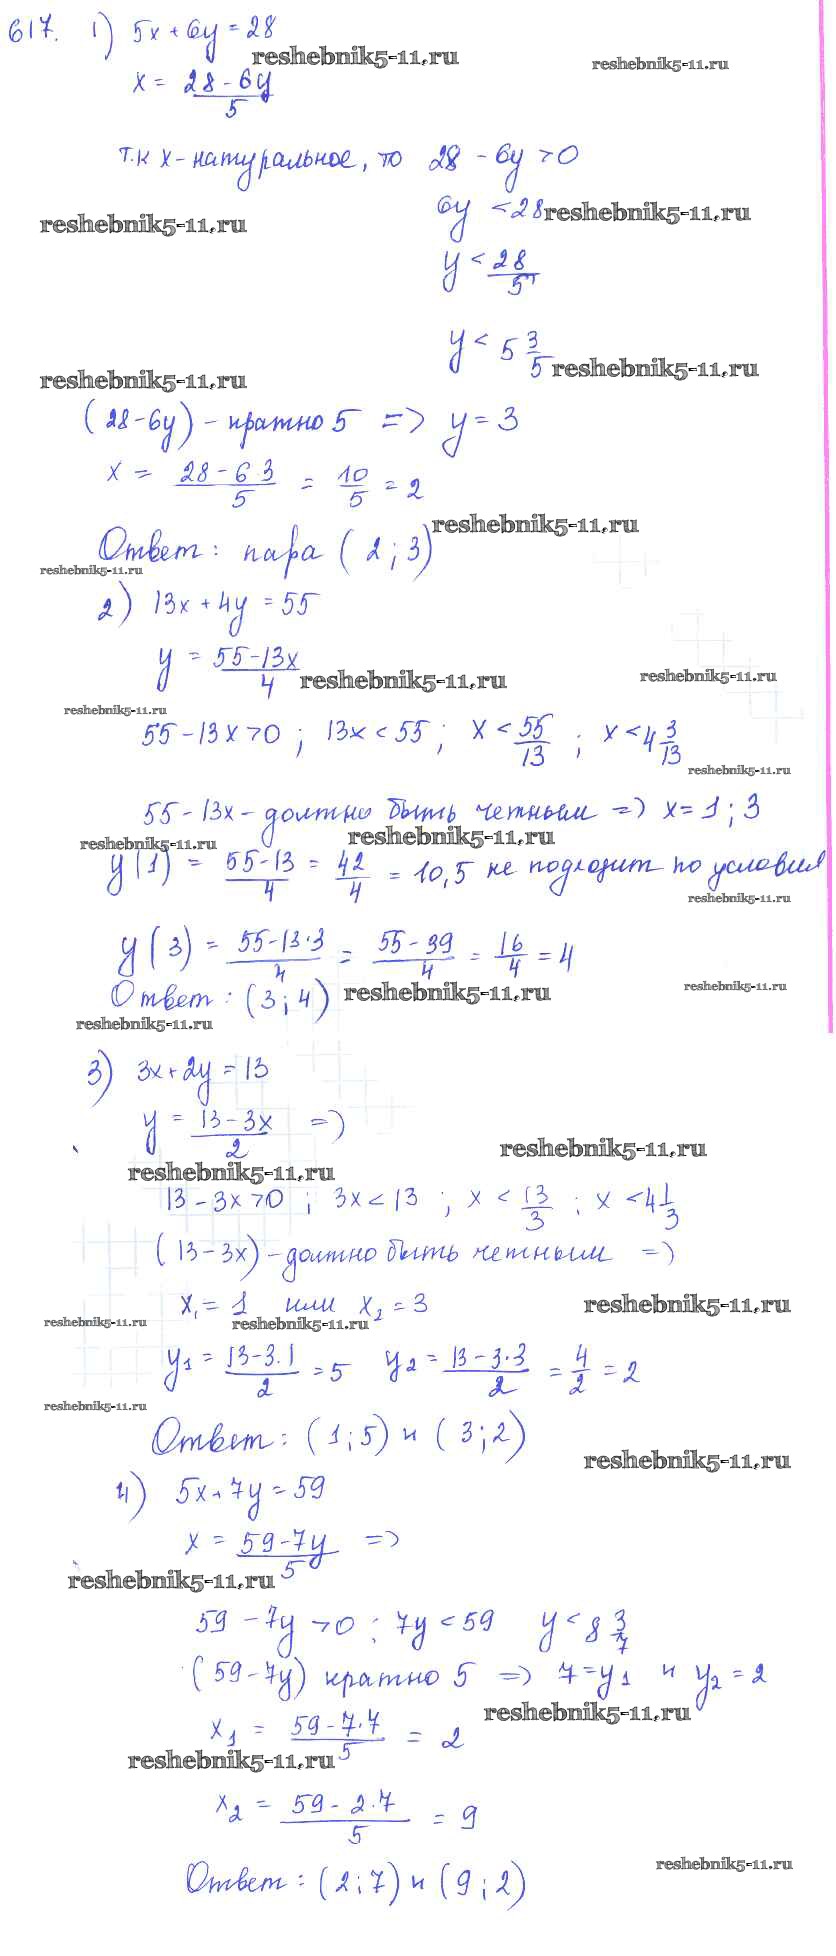 617. 1) 5x + 6y = 28
reshebnik5-11.ru
reshebnik5-11.ru
x = (28 - 6y)/5
т.к x - натуральное, то 28 - 6y > 0
reshebnik5-11.ru
6y < 28
reshebnik5-11.ru
y < 28/5
y < 5 3/5
reshebnik5-11.ru
reshebnik5-11.ru
(28 - 6y) - кратно 5 => y = 3
x = (28 - 6 3)/5 = 10/5 = 2
reshebnik5-11.ru
Ответ: пара (2; 3)
reshebnik5-11.ru
2) 13x + 4y = 55
y = (55 - 13x)/4
reshebnik5-11.ru
reshebnik5-11.ru
reshebnik5-11.ru
55 - 13x > 0; 13x < 55; x < 55/13; x < 4 3/13
reshebnik5-11.ru
55 - 13x - должно быть четным => x = 1; 3
reshebnik5-11.ru
reshebnik5-11.ru
y(1) = (55 - 13)/4 = 42/4 = 10,5 не подходит по условия
reshebnik5-11.ru
y(3) = (55 - 13·3)/4 = (55 - 39)/4 = 16/4 = 4
Ответ: (3; 4)
reshebnik5-11.ru
reshebnik5-11.ru
reshebnik5-11.ru
3) 3x + 2y = 13
y = (13 - 3x)/2 =>
reshebnik5-11.ru
reshebnik5-11.ru
13 - 3x > 0; 3x < 13; x < 13/3; x < 4 1/3
(13 - 3x) - должно быть четным =>
x₁ = 1 или x₂ = 3
reshebnik5-11.ru
reshebnik5-11.ru
reshebnik5-11.ru
y₁ = (13 - 3·1)/2 = 5 y₂ = (13 - 3·3)/2 = 4/2 = 2
reshebnik5-11.ru
Ответ: (1; 5) и (3; 2)
reshebnik5-11.ru
4) 5x + 7y = 59
x = (59 - 7y)/5 =>
reshebnik5-11.ru
59 - 7y > 0; 7y < 59 y < 8 3/7
(59 - 7y) кратно 5 => 7 = y₁ и y₂ = 2
reshebnik5-11.ru
x₁ = (59 - 7·7)/5 = 2
reshebnik5-11.ru
x₂ = (59 - 2·7)/5 = 9
reshebnik5-11.ru
Ответ: (2; 7) и (9; 2)